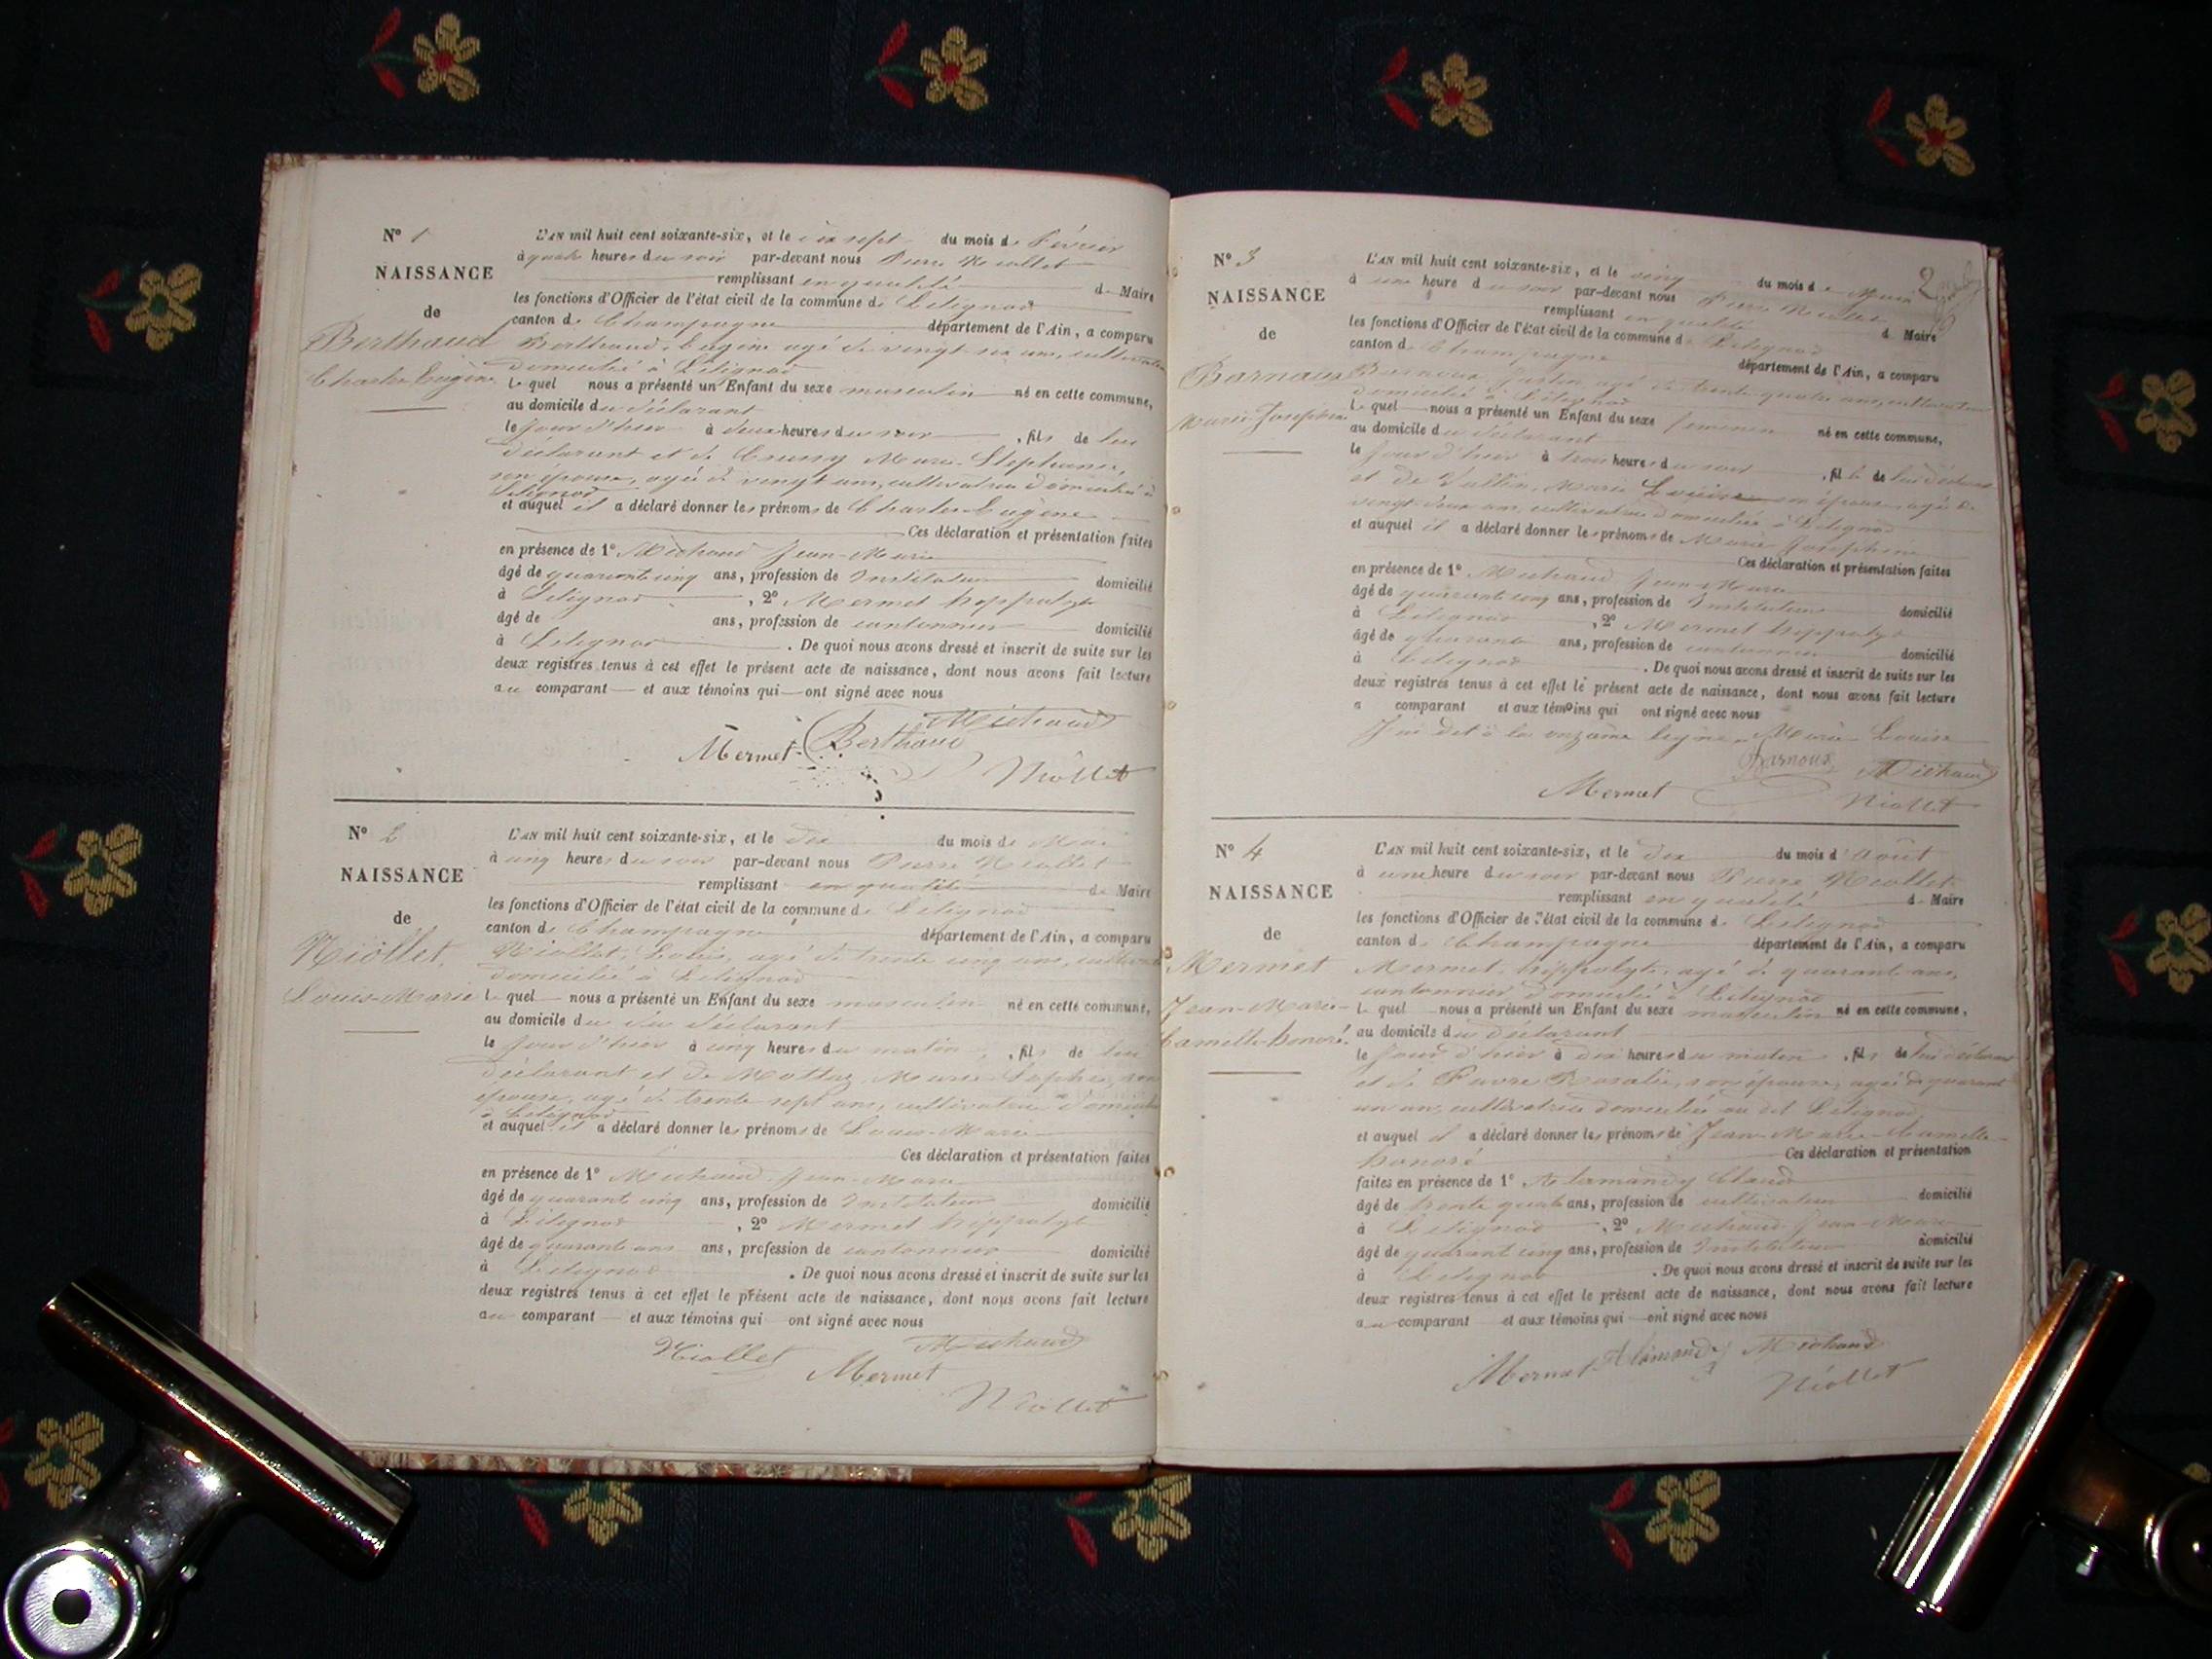 N° 1
NAISSANCE
de
Berthaud
Charles Eugène
L'AN mil huit cent soixante-six, et le dix sept du mois de Février
à quatre heures du soir par-devant nous Pierre Niollet
remplissant en qualité de Maire
les fonctions d'Officier de l'état civil de la commune de Lilignod
canton de Champagne département de l'Ain, a comparu
Berthaud, Eugène agé de vingt six ans, cultivateur
domicilié à Lilignod
lequel nous a présenté un Enfant du sexe masculin né en cette commune,
au domicile du déclarant
le jour d'hier à deux heures du soir, fils de lui
déclarant et de Marie Stéphanie,
son épouse, agée de vingt ans, cultivatrice domiciliée à
Lilignod
et auquel il a déclaré donner les prénoms de Charles Eugène
Ces déclaration et présentation faites
en présence de 1° Michaud Jean-Marie
âgé de quarante cinq ans, profession de Instituteur domicilié
à Lilignod, 2° Mermet hyppolyte
âgé de ans, profession de cantonnier domicilié
à Lilignod. De quoi nous avons dressé et inscrit de suite sur les
deux registres tenus à cet effet le présent acte de naissance, dont nous avons fait lecture
au comparant et aux témoins qui ont signé avec nous
Michaud
Mermet Berthaud
Niollet
N° 2
NAISSANCE
de
Niollet
Louis-Marie
L'AN mil huit cent soixante-six, et le dix du mois de Mai
à cinq heures du soir par-devant nous Pierre Niollet
remplissant en qualité de Maire
les fonctions d'Officier de l'état civil de la commune de Lilignod
canton de Champagne département de l'Ain, a comparu
Niollet, Louis, agé de trente cinq ans,
domicilié à Lilignod
lequel nous a présenté un Enfant du sexe masculin né en cette commune,
au domicile du dit déclarant
le jour d'hier à cinq heures du matin, fils de lui
déclarant et de Marie Sophie, son
épouse, agée de trente sept ans, cultivatrice domiciliée
à Lilignod
et auquel il a déclaré donner les prénoms de Louis-Marie
Ces déclaration et présentation faites
en présence de 1° Michaud Jean-Marie
âgé de quarante cinq ans, profession de Instituteur domicilié
à Lilignod, 2° Mermet hippolyte
âgé de quarante ans ans, profession de cantonnier domicilié
à Lilignod. De quoi nous avons dressé et inscrit de suite sur les
deux registres tenus à cet effet le présent acte de naissance, dont nous avons fait lecture
au comparant et aux témoins qui ont signé avec nous
Niollet Michaud
Mermet
Niollet
2
N° 3
NAISSANCE
de
Barnoux
Marie Joséphine
L'AN mil huit cent soixante-six, et le cinq du mois de
à une heure du soir par-devant nous Pierre Niollet
remplissant en qualité de Maire
les fonctions d'Officier de l'état civil de la commune de Lilignod
canton de Champagne département de l'Ain, a comparu
Barnoux, agé de trente quatre ans, cultivateur
domicilié à Lilignod
lequel nous a présenté un Enfant du sexe féminin né en cette commune,
au domicile du déclarant
le jour d'hier à trois heures du soir, fille de lui déclarant
et de Vallin, Marie Louise son épouse, agée de
vingt deux ans, cultivatrice domiciliée à Lilignod
et auquel il a déclaré donner les prénoms de Marie Joséphine
Ces déclaration et présentation faites
en présence de 1° Michaud Jean-Marie
âgé de quarante cinq ans, profession de Instituteur domicilié
à Lilignod, 2° Mermet hyppolyte
âgé de quarante ans, profession de cantonnier domicilié
à Lilignod. De quoi nous avons dressé et inscrit de suite sur les
deux registres tenus à cet effet le présent acte de naissance, dont nous avons fait lecture
a comparant et aux témoins qui ont signé avec nous
à la onzième ligne Marie Louise
Barnoux Michaud
Mermet Niollet
N° 4
NAISSANCE
de
Mermet
Jean-Marie-
Camille-honoré
L'AN mil huit cent soixante-six, et le dix du mois d'Août
à une heure du soir par-devant nous Pierre Niollet
remplissant en qualité de Maire
les fonctions d'Officier de l'état civil de la commune de Lilignod
canton de Champagne département de l'Ain, a comparu
Mermet, hippolyte, agé de quarante ans,
cantonnier domicilié à Lilignod
lequel nous a présenté un Enfant du sexe masculin né en cette commune,
au domicile du déclarant
le jour d'hier à dix heures du matin, fils de lui déclarant
et de Favre Rosalie, son épouse, agée de quarante
un ans, cultivatrice domiciliée au dit Lilignod
et auquel il a déclaré donner les prénoms de Jean-Marie-Camille-
honoré Ces déclaration et présentation
faites en présence de 1° Claude
âgé de trente quatre ans, profession de cultivateur domicilié
à Lilignod, 2° Michaud Jean-Marie
âgé de quarante cinq ans, profession de Instituteur domicilié
à Lilignod. De quoi nous avons dressé et inscrit de suite sur les
deux registres tenus à cet effet le présent acte de naissance, dont nous avons fait lecture
au comparant et aux témoins qui ont signé avec nous
Mermet Michaud
Niollet